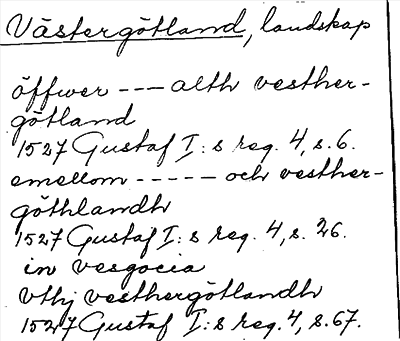 Västergötland, landskap
öffwer --- alth vesther-
götland
1527 Gustaf I:s reg. 4, s. 6.
emellom ----- och vesther-
göthlandh
1527 Gustaf I:s reg. 4, s. 26.
in vesgocia
vthj vesthergötlandh
1527 Gustaf I:s reg. 4, s. 67.